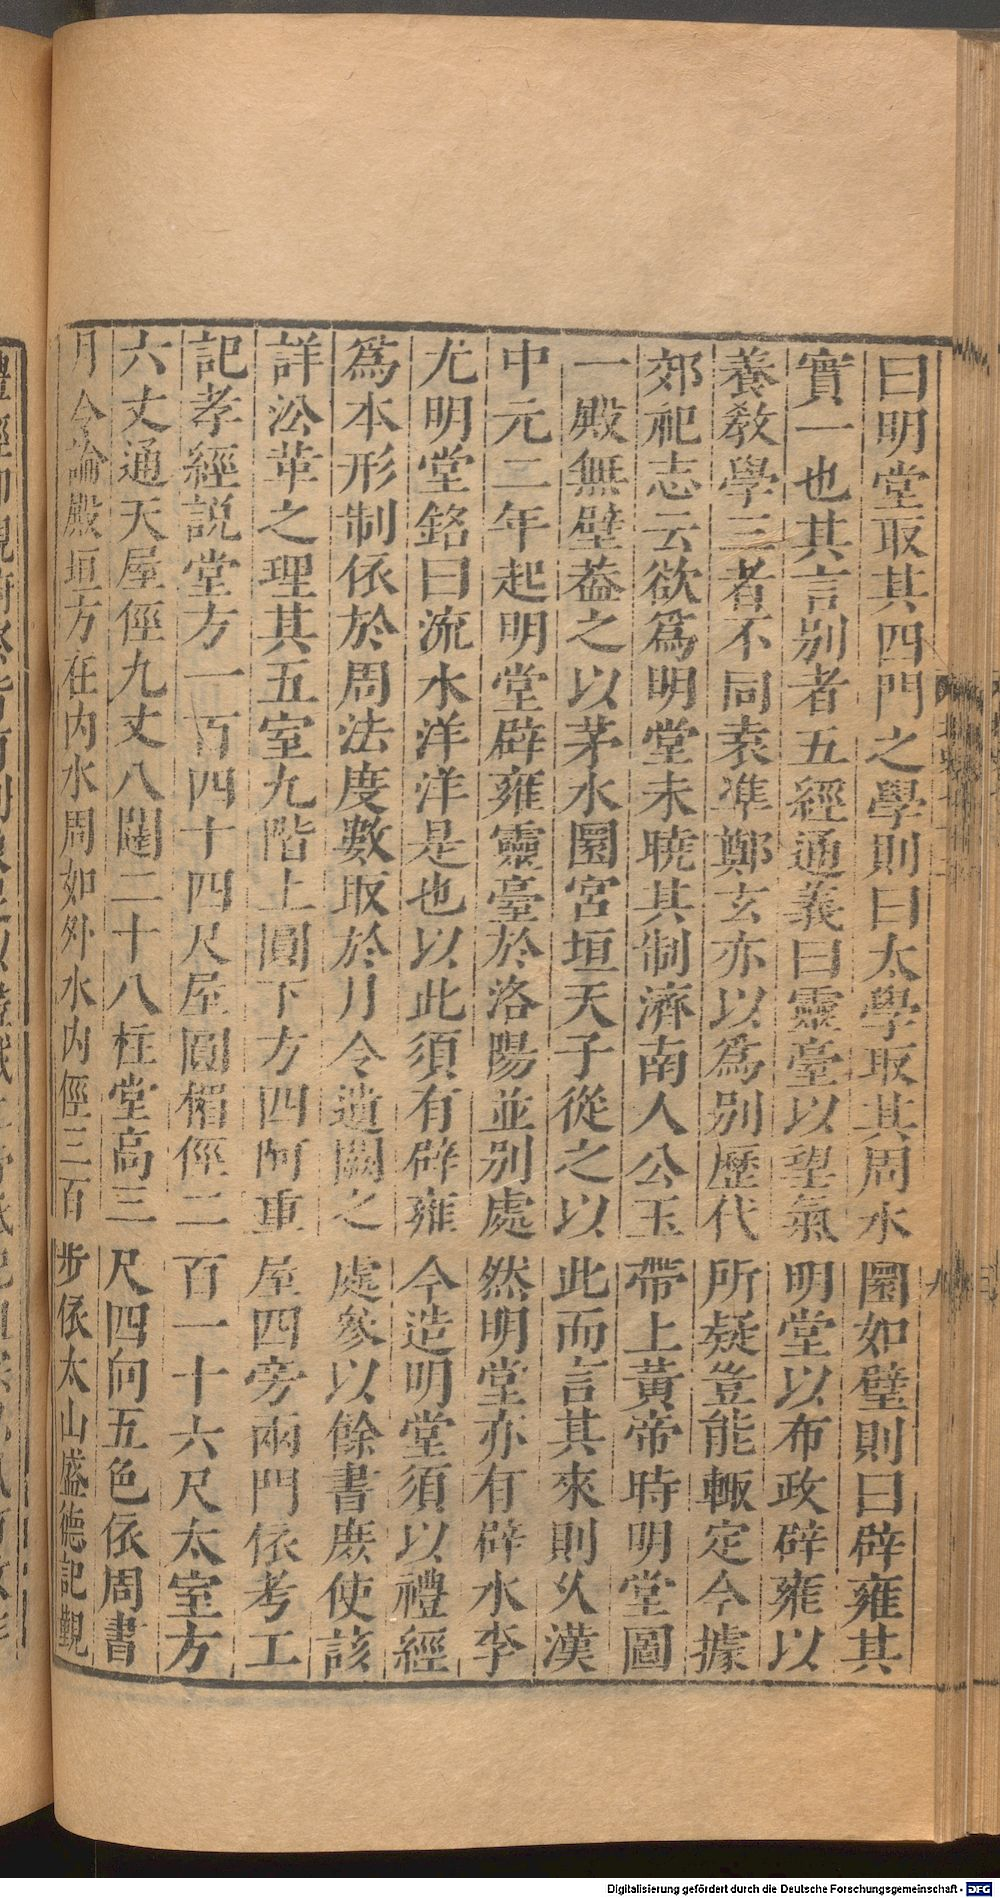 曰明堂取其四門之學則曰太學取其周水圜如璧則曰辟雍其
實一也其言别者五經通義曰靈臺以望氣明堂以布政辟雍以
養教學三者不同袁準鄭玄亦以爲别歷代所疑豈能輒定今據
郊祀志云欲爲明堂未曉其制濟南人公玉帶上黃帝時明堂圖
一殿無壁葢之以茅水圜宮垣天子從之以此而言其來則乆漢
中元二年起明堂辟雍靈臺於洛陽並别處然明堂亦有辟水李
尤明堂銘曰流水洋洋是也以此須有辟雍今造明堂須以禮經
爲本形制依於周法度數取於月令遺闕之處參以餘書庶使該
詳沿革之理其五室九階上圓下方四阿重屋四旁兩門依考工
記孝經説堂方一百四十四尺屋圓楣徑二百一十六尺太室方
六丈通天屋徑九丈八闥二十八柱堂高三尺四向五色依周書
月令論殿垣方在内水周如外水内徑三百步依太山盛德記觀
Digitalisierung gefördert durch die Deutsche Forschungsgemeinschaft - DFG